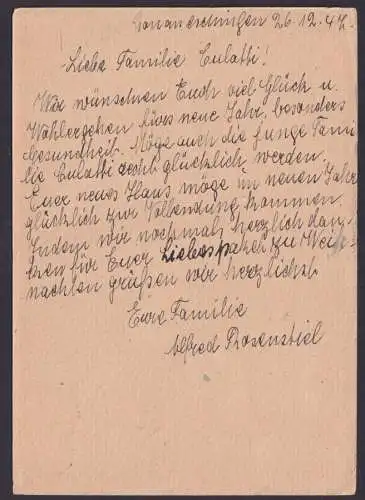 Donaueschingen 26.12.47.
Liebe Familie Culatti!
Wir wünschen Euch viel Glück u.
Wohlergehen fürs neue Jahr, besonders
Gesundheit. Möge auch die junge Fami
lie Culatti recht glücklich werden.
Euer neues Haus möge im neuen Jahr
glücklich zur Vollendung kommen.
Indem wir nochmals herzlich dan-
ken für Euer Liebespaket zu Weih-
nachten grüßen wir herzlichst
Eure Familie
Alfred Rosenstiel